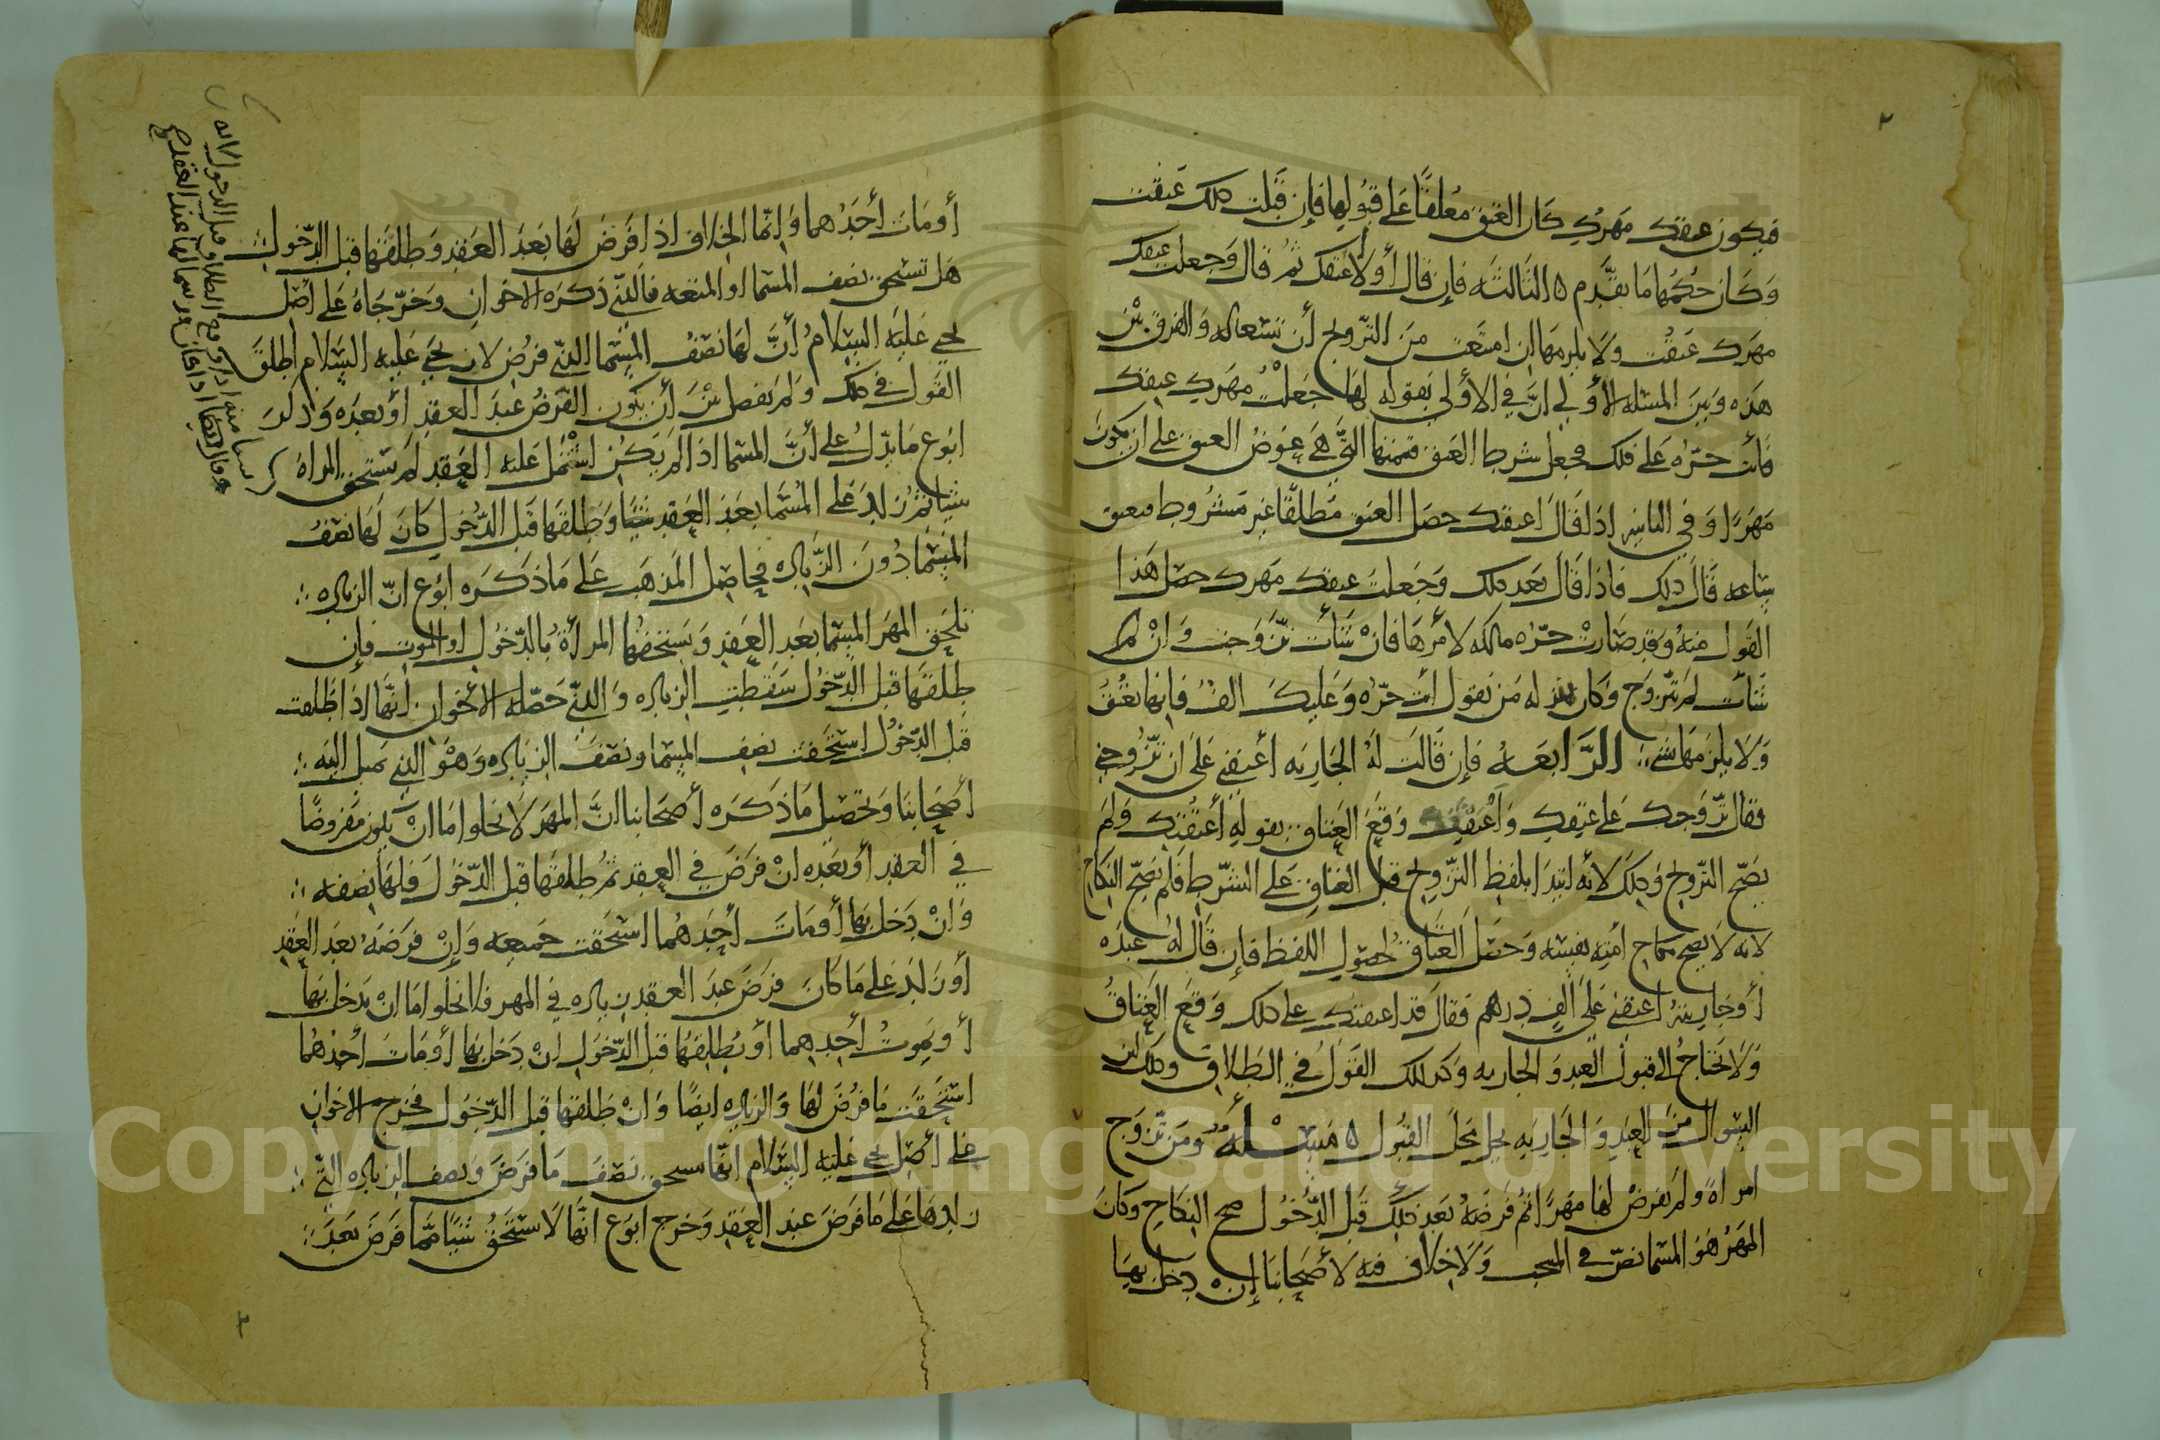 ٢
فيكون عتقك مهرك كان العتق معلقًا على قبولها فإن قبلت ذلك عتقت
وكان حكمها ما تقدم ٥ الثالثه فإن قال أولا عتقتك ثم قال وجعلت عتقك
مهرك عتقت ولا يلزمها ان امتنعت من التزويج أن تستعاله والفرق بين
هذه وبين المسئله الأولى انّ في الأولى بقوله لها جعلت مهرك عتقك
فأنت حرّه على ذلك فجعل شرط العتق قيمتها التي هي عوض العتق على ان يكون
مهرًا وفي الثانيه اذا قال اعتقتك حصل العتق مطلقًا غير مشروط فيعتق
ساعه قال ذلك فاذا قال بعد ذلك وجعلت عتقك مهرك حصل هذا
القول منه وقد صارت حرّه مالكه لأمرها فان شأت تزوجت وان لم
تشأت لم تتزوج وكان بمنزله من يقول انت حرّه وعليك الف فإنها تعتق
ولا يلزمها شي ؛ الرّابعه فإن قالت له الجاريه أعتقني على ان تتزوجني
فقال تزوجتك على عتقك وأعتقتك وقع العتاق بقوله أعتقتك ولم
يصح التزويج وذلك لأنه ابتدا بلفظ التزويج قبل العتاق على الشرط فلم يصح النكاح
لانه لا يصح نكاح أمته بنفسه وحصل العتاق لحصول اللفظ فإن قال له عبده
أو جاريته اعتقني على ألف درهم فقال قد اعتقتك على ذلك وقع العتاق
ولا يحتاج الى قبول العبد والجاريه وكذلك القول في الطلاق وذلك لان
السؤال من العبد والجاريه يحل محل القبول ٥ مسئله ومن تزوج
امراة ولم يفرض لها مهرًا ثم فرضه بعد ذلك قبل الدّخول صح النكاح وكان
المهر هو المسما نصّ في المنتخب ولا خلاف فيه لأصحابنا إن دخل بها
أو مات أحدهما وإنّما الخلاف اذا فرض لها بعد العقد وطلقها قبل الدّخول
هل تستحق نصف المسما او المتعه فالذي ذكره الاخوان وخرّجاه على أصل
يحي عليه السلام أنّ لها نصف المسما الذي فرض لان يحي عليه السلام اطلق
القول في ذلك ولم يفصل بين أن يكون الفرض عند العقد او بعده وذكر
ابوع ما يدل على أنّ المسما اذا لم يكن اشتمل عليه العقد لم تستحق المراه
شيا ثم زيد على المسما بعد العقد شيا وطلقها قبل الدخول كان لها نصف
المسما دون الزّياده فحاصل المذهب على ما ذكره ابوع انّ الزياده ؛
تلحق المهر المسما بعد العقد وتستحقها المرأة بالدّخول او الموت فإن
طلقها قبل الدّخول سقطت الزياده والذي حصّله الأخوان أنّها اذا طلقت
قبل الدّخول استحقت نصف المسما ونصف الزياده وهو الذي نميل اليه ؛
أصحابنا وتحصيل ما ذكره أصحابنا انّ المهر لا يخلوا اما ان يكون مفروضًا
في العقد أو بعده ان فرض في العقد ثم طلقها قبل الدّخول فلها نصفه ؛
وان دخل بها أو مات أحدهما استحقت جميعه وإن فرضه بعد العقد
أو زيد على ما كان فرض عند العقد زياده في المهر فلا يخلوا اما ان يدخل بها
أو يموت أحدهما أو يطلقها قبل الدّخول ان دخل بها أو مات أحدهما
استحقت ما فرض لها والزياده ايضًا وان طلقها قبل الدخول فخرج الاخوان
على أصل يحي عليه السلام انها تستحق نصف ما فرض ونصف الزياده التي ؛
زيدها على ما فرض عند العقد وخرج ابوع انّها لا تستحق شيًا مما فرض بعد ؛
Copyright © King Saud University